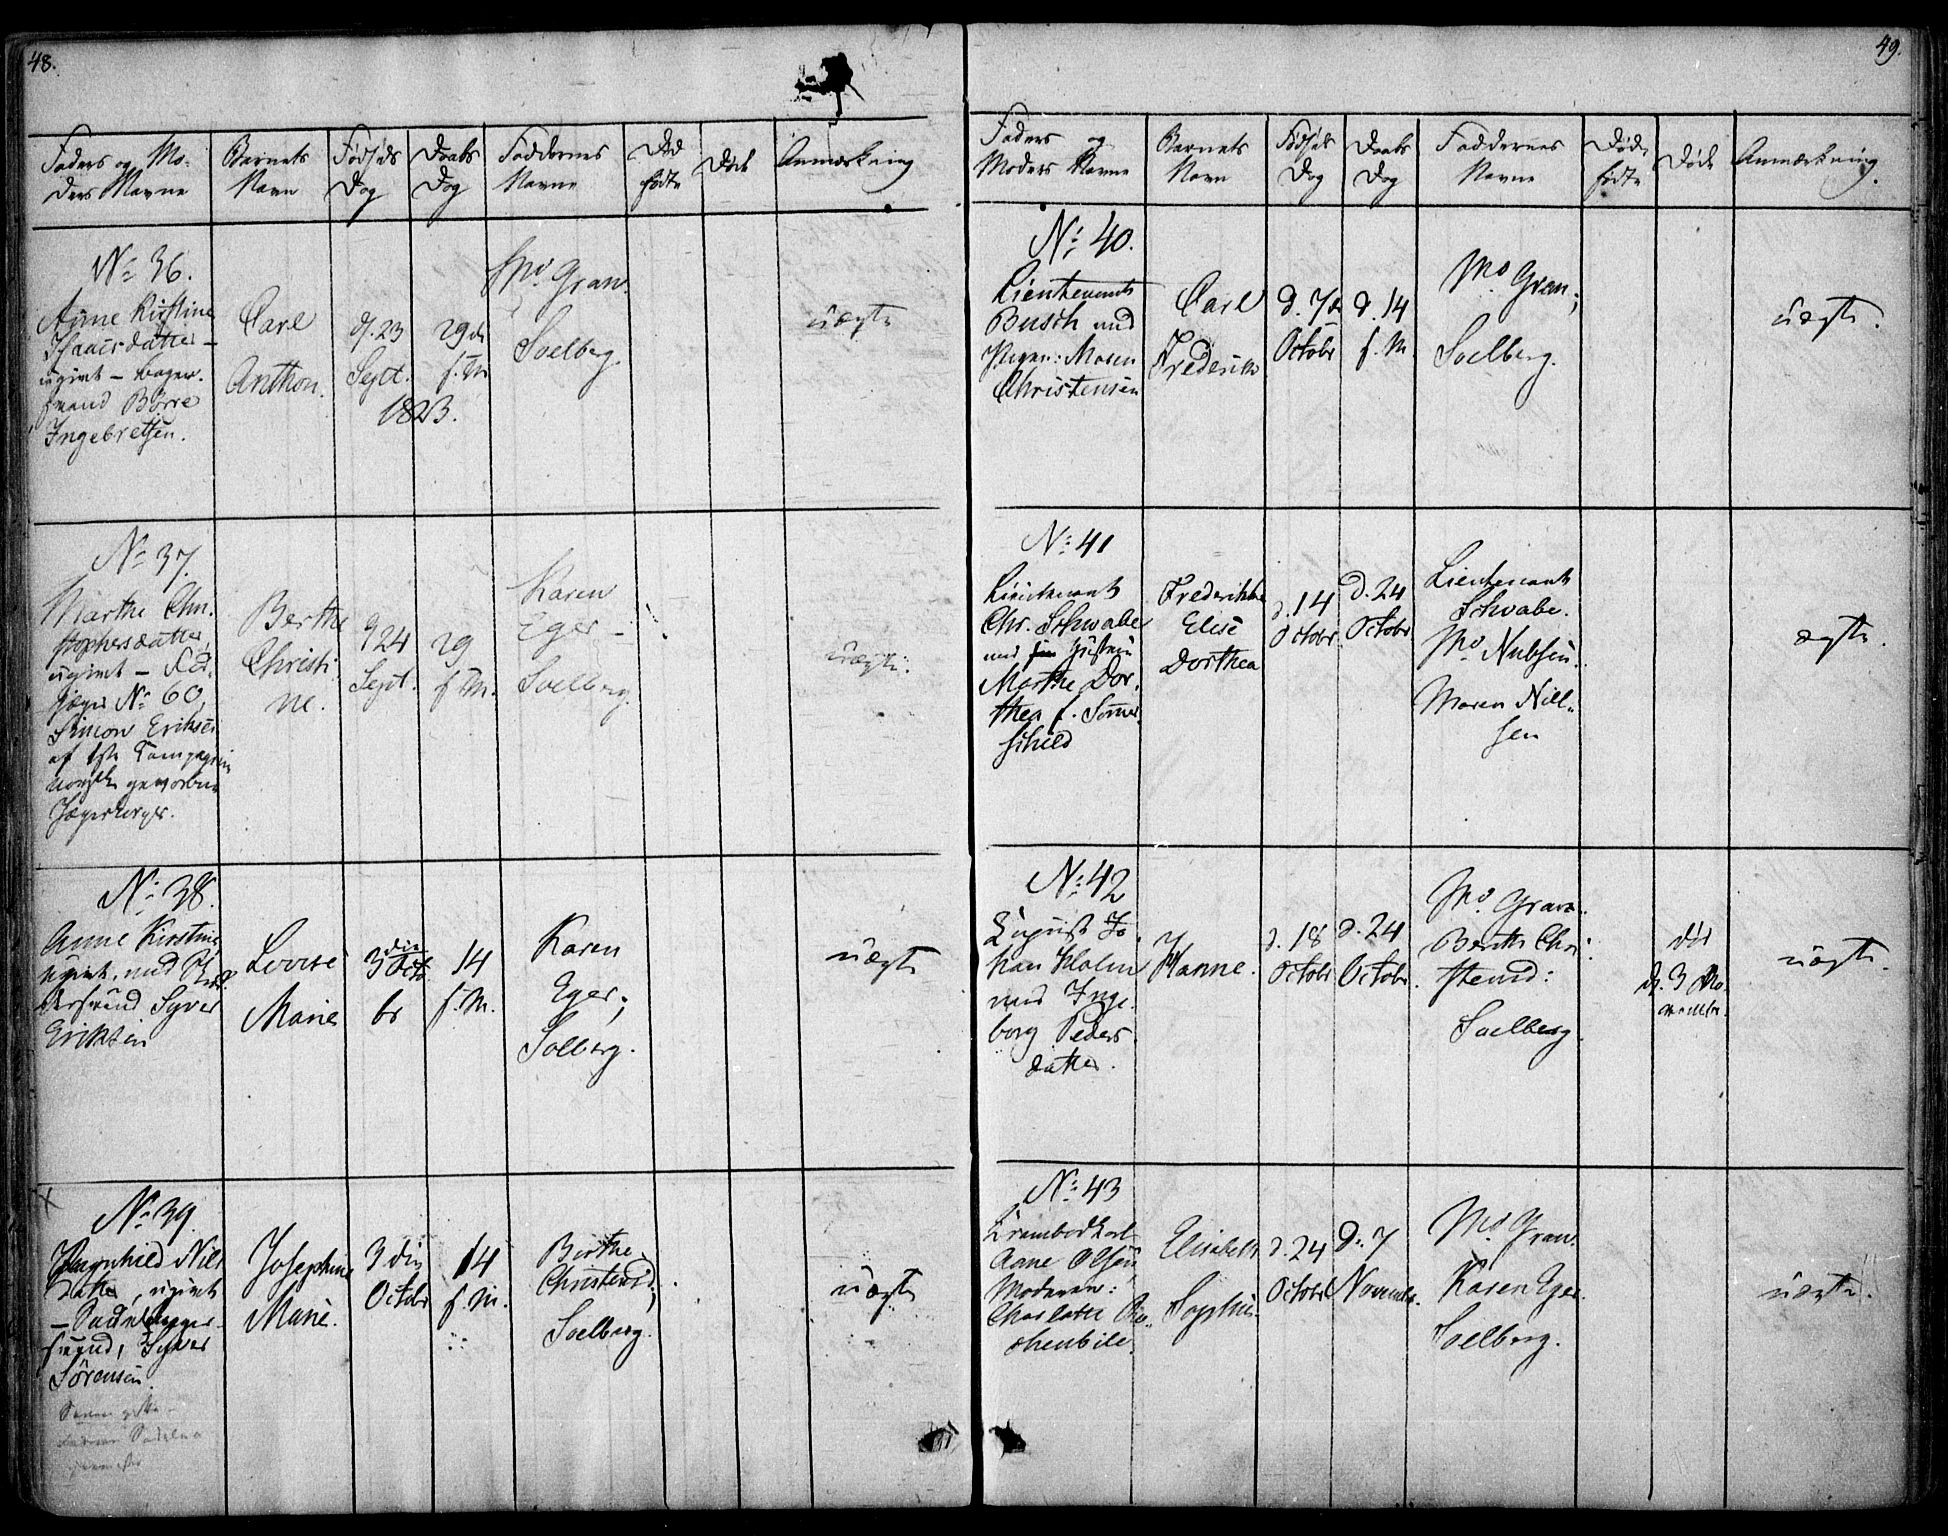 48.
Faders og Mo-
ders Navne
Barnets
Navn
Fødsels
Dag
Daabs
Dag
Faddernes
Navne
Død
fødte
Døde
Anmærkning
No 36.
Anne Kirstine
Isaacsdatter -
ugivt - Bager-
svend Börre
Ingebretsen.
Carl
Anthon.
d. 23
Sept.
1823.
29de
f. M
Mo Gran.
Soelberg.
uægte
No 37.
Marthe Chri-
stophersdatter,
ugivt -
jæger No 60,
Simon Eriksen
af 1ste Compagnie
norske gevorbne
Jægerkorps.
Berthe
Christi-
ne.
d 24
Sept.
29
f. M.
Karen
Eger -
Soelberg.
uægte.
No 38.
Anne Kirstine
ugivt, med
Syver
Eriksen
Lovise
Marie
3 die
Octo
br
14
f. M.
Karen
Eger;
Solberg.
uægte
No 39.
Ragnhild Nils
datter, ugivt
- Sadelmager-
svend, Syver
Sörensen.
Josephine
Marie.
3 die
Octobr
14
f. M.
Berthe
Christensd;
Soelberg.
uægte
49.
Faders og
Moders Navne
Barnets
Navn
Fødsels
Dag
Daabs
Dag
Faddernes
Navne
Døde
fødte
Døde
Anmærkning.
No 40.
Lieutenant
Busch med
Pigen: Maren
Christensen
Carl
Frederik
d. 7de
Octobr
d. 14
f. M
Mo Gran;
Soelberg.
uægte.
No 41
Lieutenant
Chr. Schwabe
med Hustrue
Marthe Dor-
thea f. Sömer-
schield
Frederikke
Elise
Dorthea
d. 14
Octobr.
d. 24
Octobr
Lieutenant
Schvabe.
Mo Nubsen.
Maren Niel-
sen
ægte.
No 42
August Jo-
han Holm
med Inge-
borg Peders
datter.
Hanne.
d. 18
Octobr
d. 24
Octobr.
Mo Gran.
Berthe Chri-
stensd:
Soelberg
död
d. 3 No-
vember.
uægte.
No 43
Krambodkarl
Arne Olsen,
Moderen:
Charlotte
Elisabeth
Sophie.
d. 24
Octobr
d. 7
November.
Mo Gran.
Karen Eger
Soelberg.
uægte.